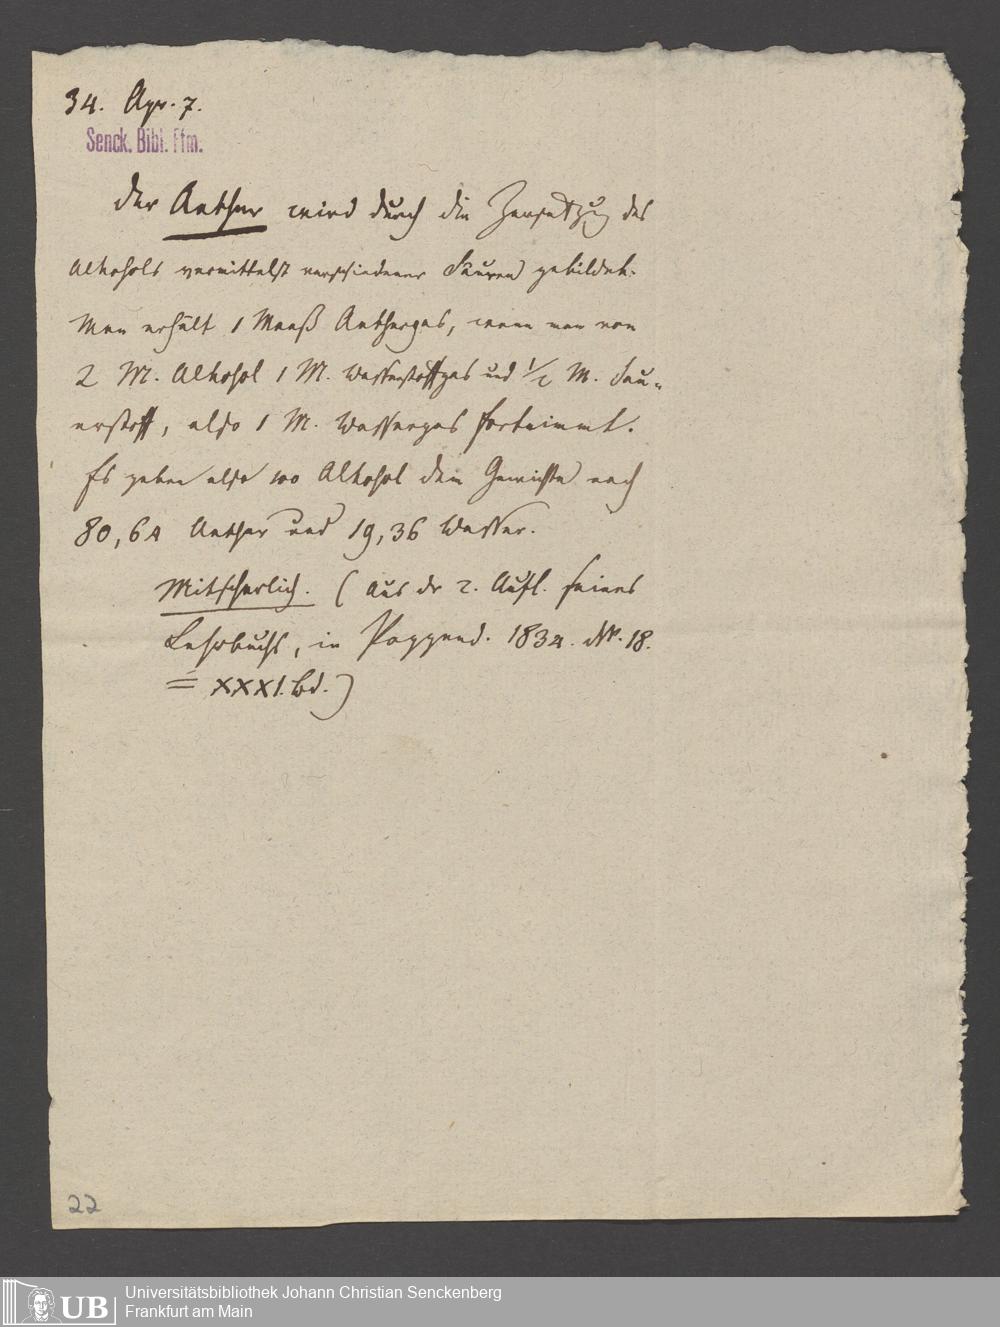 34. Apr. 7.
Senck. Bibl. Ffm.
Der Aether wird durch die Zersetzung des
Alkohols vermittelst verschiedener Säuren gebildet.
Man erhält 1 Maaß Aethergas, wenn man von
2 M. Alkohol 1 M. Wasserstoffgas und 1/2 M. Sau-
erstoff, also 1 M. Wassergas fortnimmt.
Es geben also 100 Alkohol dem Gewichte nach
80,64 Aether und 19,36 Wasser.
Mitscherlich. (Aus der 2. Aufl. seines
Lehrbuchs, in Poggend. 1834. Nr. 18.
= XXXI. Bd.)
22
UB
Universitätsbibliothek Johann Christian Senckenberg
Frankfurt am Main